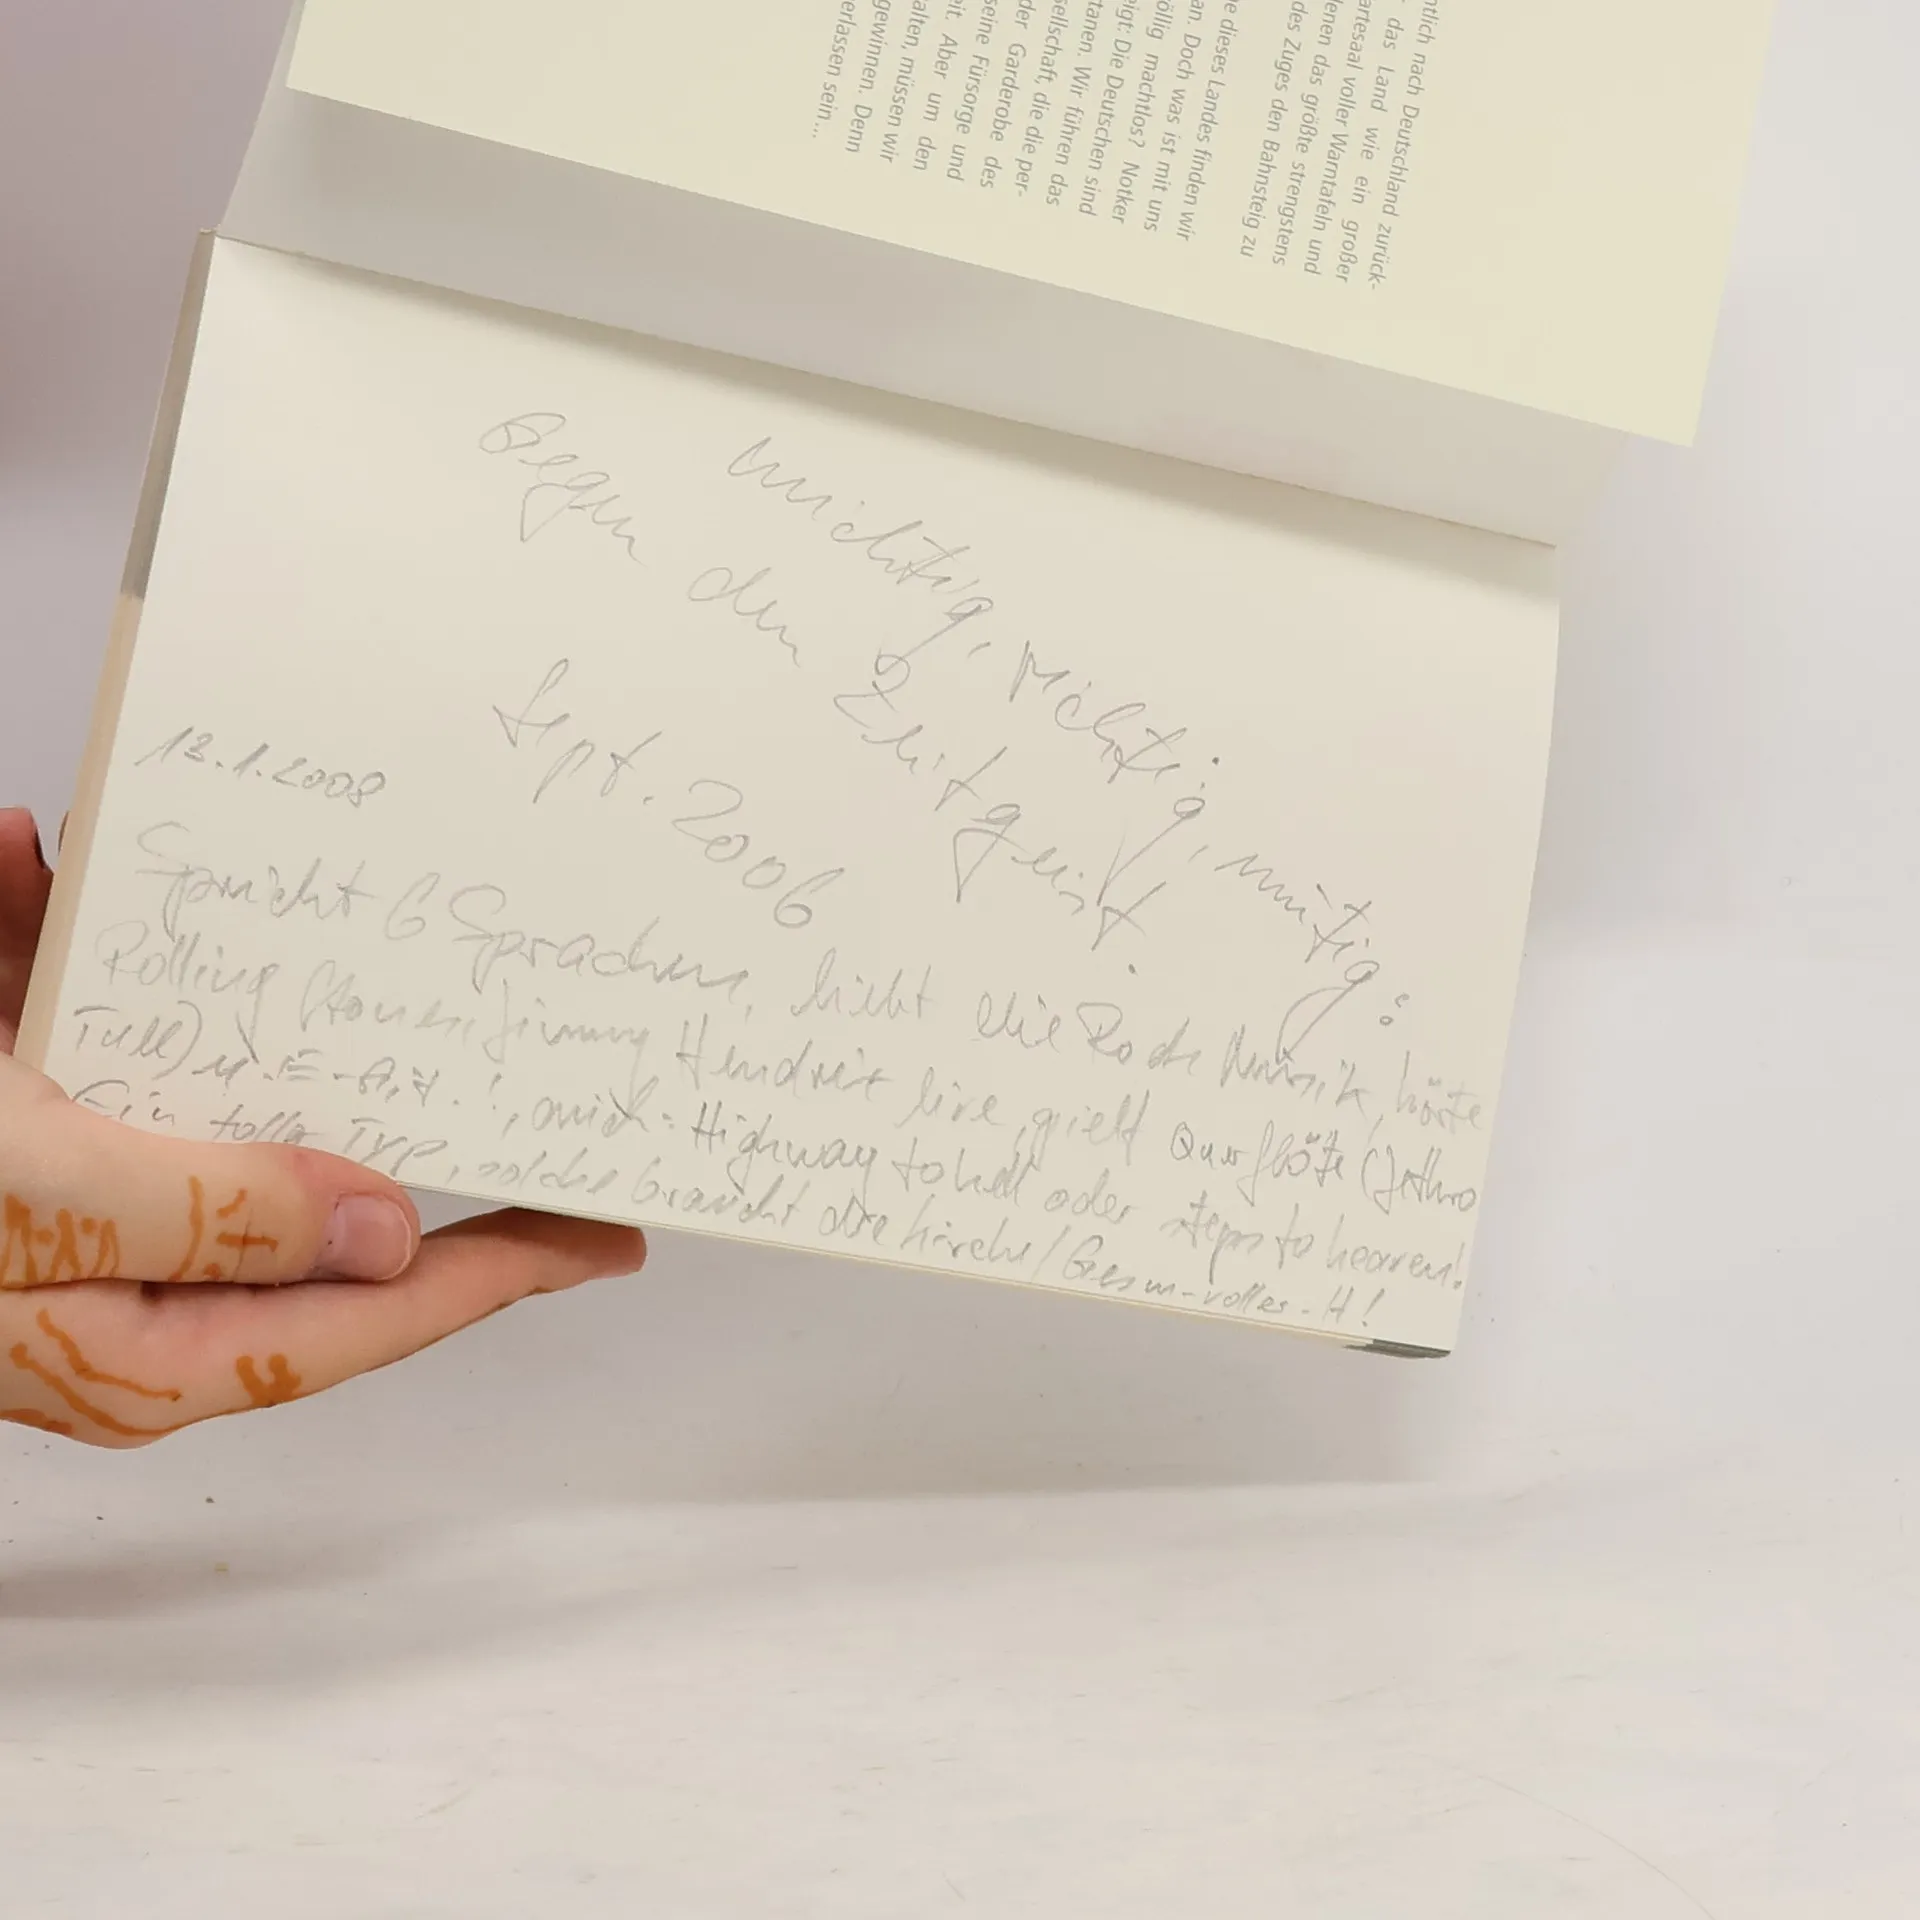 ntlich nach Deutschland zurück-
das Land wie ein großer
artesaal voller Warntafeln und
denen das größte strengstens
des Zuges den Bahnsteig zu
e dieses Landes finden wir
an. Doch was ist mit uns
öllig machtlos? Notker
eigt: Die Deutschen sind
tanen. Wir führen das
ellschaft, die die per-
der Garderobe des
seine Fürsorge und
eit. Aber um den
alten, müssen wir
gewinnen. Denn
erlassen sein...
wichtig, richtig, mutig:
Gegen den Zeitgeist.
Sept. 2006
13.1.2008
Spricht 6 Sprachen, liebt die Rock Musik, hörte
Rolling Stones, Jimmy Hendrix live, spielt Querflöte (Jethro
Tull) u. E-Git.!, auch: Highway to hell oder steps to heaven!
Ein toller Typ, solche braucht die Kirche/